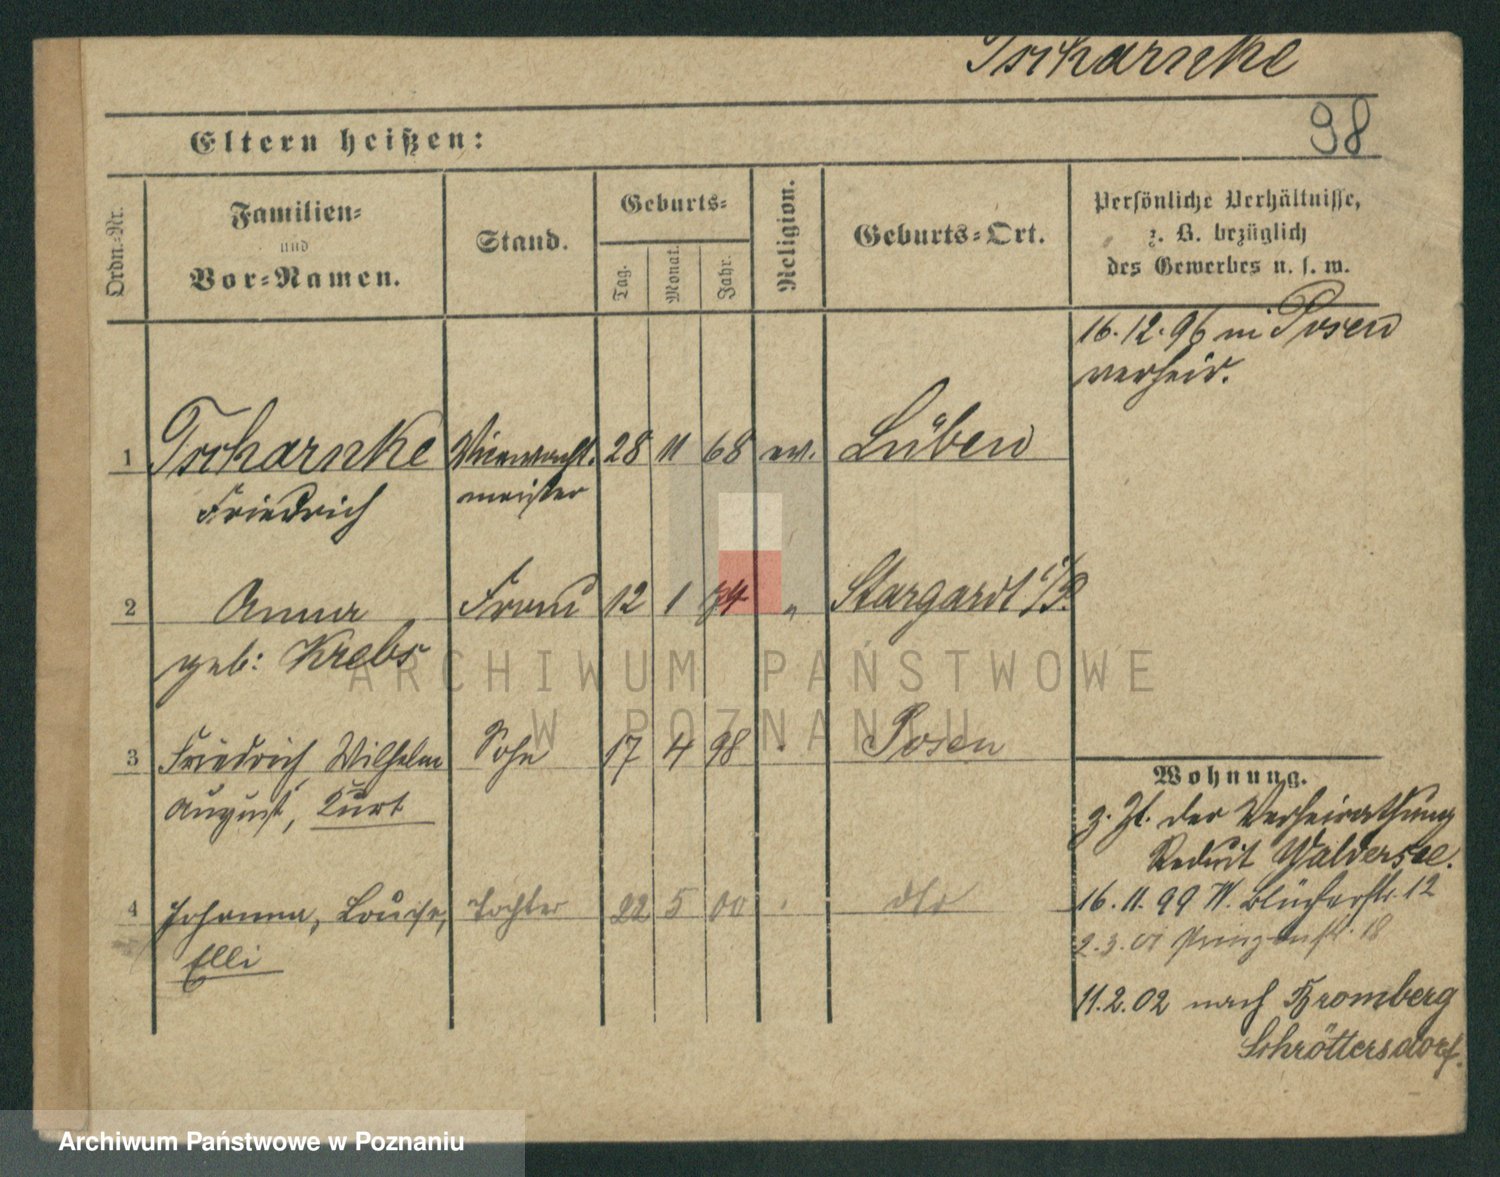 Tscharnke
98
Eltern heißen:
Ordn.-Nr.
Familien-
und
Vor-Namen.
Stand.
Geburts-
Tag.
Monat.
Jahr.
Religion.
Geburts-Ort.
Persönliche Verhältnisse,
z. B. bezüglich
des Gewerbes u. s. w.
16.12.96 in Posen
verheir.
1 Tscharnke 28 11 68 ev. Lüben
Friedrich meister
2 Anna Frau 12 1 74 " Stargardt i/P.
geb: Krebs
3 Friedrich Wilhelm Sohn 17 4 98 " Posen
August, Kurt
4 Johanna, Louise, Tochter 22 5 00 " dto
Elli
Wohnung.
z. Zt. der Verheirathung
Reduit Waldersee.
16.11.99 W. Blücherstr. 12
2.3.01 Prinzenstr. 18
11.2.02 nach Bromberg
Schröttersdorf.
ARCHIWUM PAŃSTWOWE
W POZNANIU
Archiwum Państwowe w Poznaniu